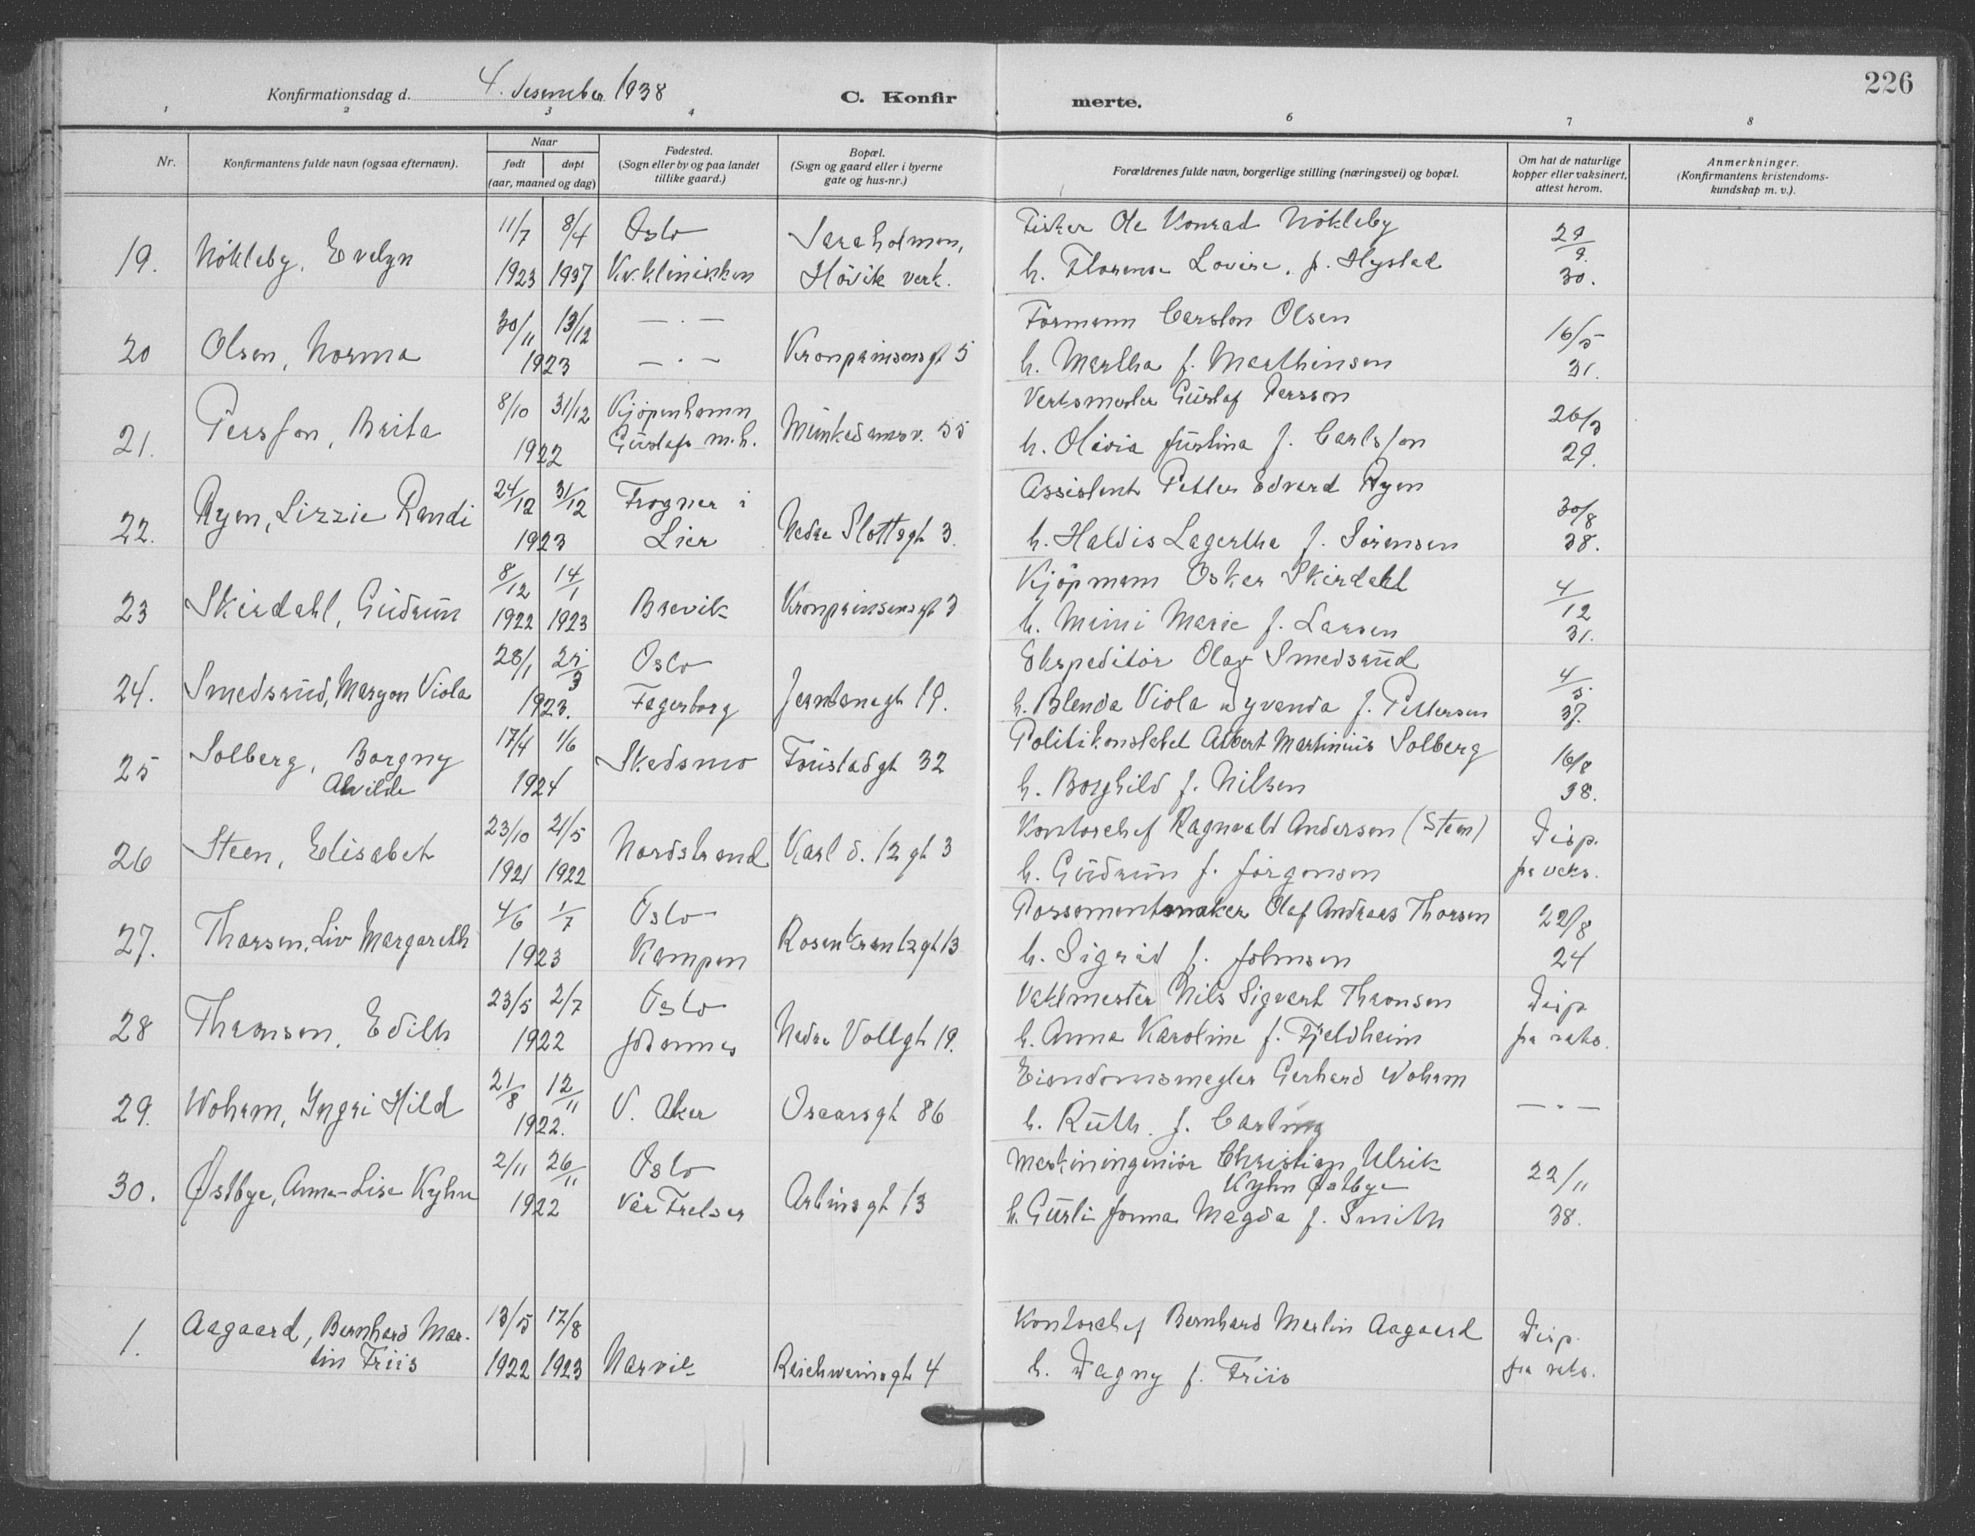 226
Konfirmationsdag d. 4. desember 1938
C. Konfir merte.
1 2 3 4 6 7 8
Nr.
Konfirmantens fulde navn (ogsaa efternavn).
Naar
født døpt
(aar, maaned og dag)
Fødested.
(Sogn eller by og paa landet
tillike gaard.)
Bopæl.
(Sogn og gaard eller i byerne
gate og hus-nr.)
Forældrenes fulde navn, borgerlige stilling (næringsvei) og bopæl.
Om hat de naturlige
kopper eller vaksinert,
attest herom.
Anmerkninger.
(Konfirmantens kristendoms-
kundskap m. v.).
11/7 8/4 Oslo Saraholmen, Fisker Ole Konrad Nökleby 29/9.
19. Nökleby, Evelyn 1923 1937 Kv. klinikken Hövik verk. h. Florense Lovise, f. Hystad 30.
30/11 13/12 — . — Formann Carsten Olsen 16/5
20 Olsen, Norma 1923 — . — Kronprinsensgt 5 h. Martha f. Marthinsen 31.
8/10 31/12 Kjöpenhamn Verksmester Gustaf Persson 26/3
21. Persson, Brita 1922 Gustafs m.h. Munkedamsv. 55 h. Olivia Justina f. Carlsson 29.
24/12 31/12 Frogner i Assistent Petter Edvard Ryen 30/8
22. Ryen, Lizzie Randi 1923 Lier Nedre Slottsgt 3. h. Haldis Lagertha f. Sörensen 38.
8/12 14/1 Kjöpmann Oskar Skirdahl 4/12
23 Skirdahl, Gudrun 1922 1923 Brevik Kronprinsensgt 3 h. Mimi Marie f. Larsen 31.
28/1 25/3 Oslo Ekspeditör Olav Smedsrud 4/5
24. Smedsrud, Maryon Viola 1923. Fagerborg 19. h. Blenda Viola f. Pettersen 37.
17/4 1/6 Politikonstabel Albert Martinius Solberg 16/8
25 Solberg, Borgny Alvilde 1924 Skedsmo 32 h. Borghild f. Nilsen 38.
23/10 21/5 Kontorchef Ragnvald Andersen (Steen) Disp.
26 Steen, Elisabet 1921 1922 Nordstrand Karl d. 12 gt 3 h. Gudrun f. Jörgensen fra vaks.
4/6 1/7 Oslo Possementmaker Olaf Andreas Thorsen 22/8
27. Thorsen, Liv Margareth 1923 Kampen Rosenkrantzgt 13 h. Sigrid f. Johnsen 24
23/5 2/7 Oslo Vaktmester Nils Sigvart Thomsen Disp
28 Thomsen, Edith 1922 Johannes Nedre Vollgt 19. h. Anna Karoline f. Fjeldheim fra vaks.
21/8 12/11 Eiendomsmegler Gerhard Woham
29. Woham, Yngri Hild 1922. V. Aker Oscarsgt 86 h. Ruth. f. Carling — . —
2/11 26/11 Oslo Maskiningeniör Christian Ulrik Kyhn Østbye 22/11
30. Østbye, Anne-Lise Kyhn 1922 Vår Frelser Arbinsgt 13 h. Gurli Jonna Magda f. Smith 38.
13/5 12/8 Kontorchef Bernhard Martin Aagaard Disp.
1. Aagaard, Bernhard Mar-
tin Friis 1922 1923 Narvik Reichweinsgt 4 h. Dagny f. Friis fra vaks.